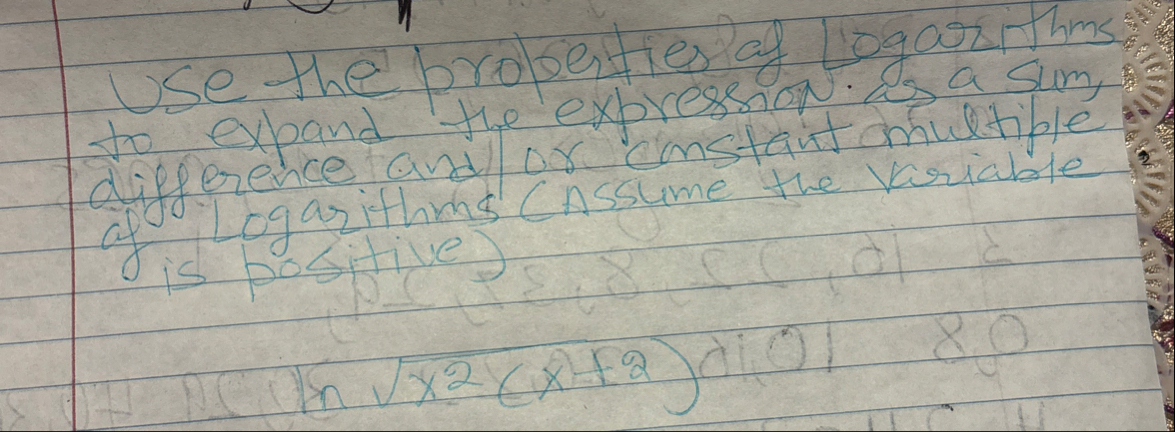 Use the properties of Logarithms
to expand the expression. as a sum,
difference and/or constant multiple
of Logarithms (Assume the variable
is positive)
ln √x2 (x+2)